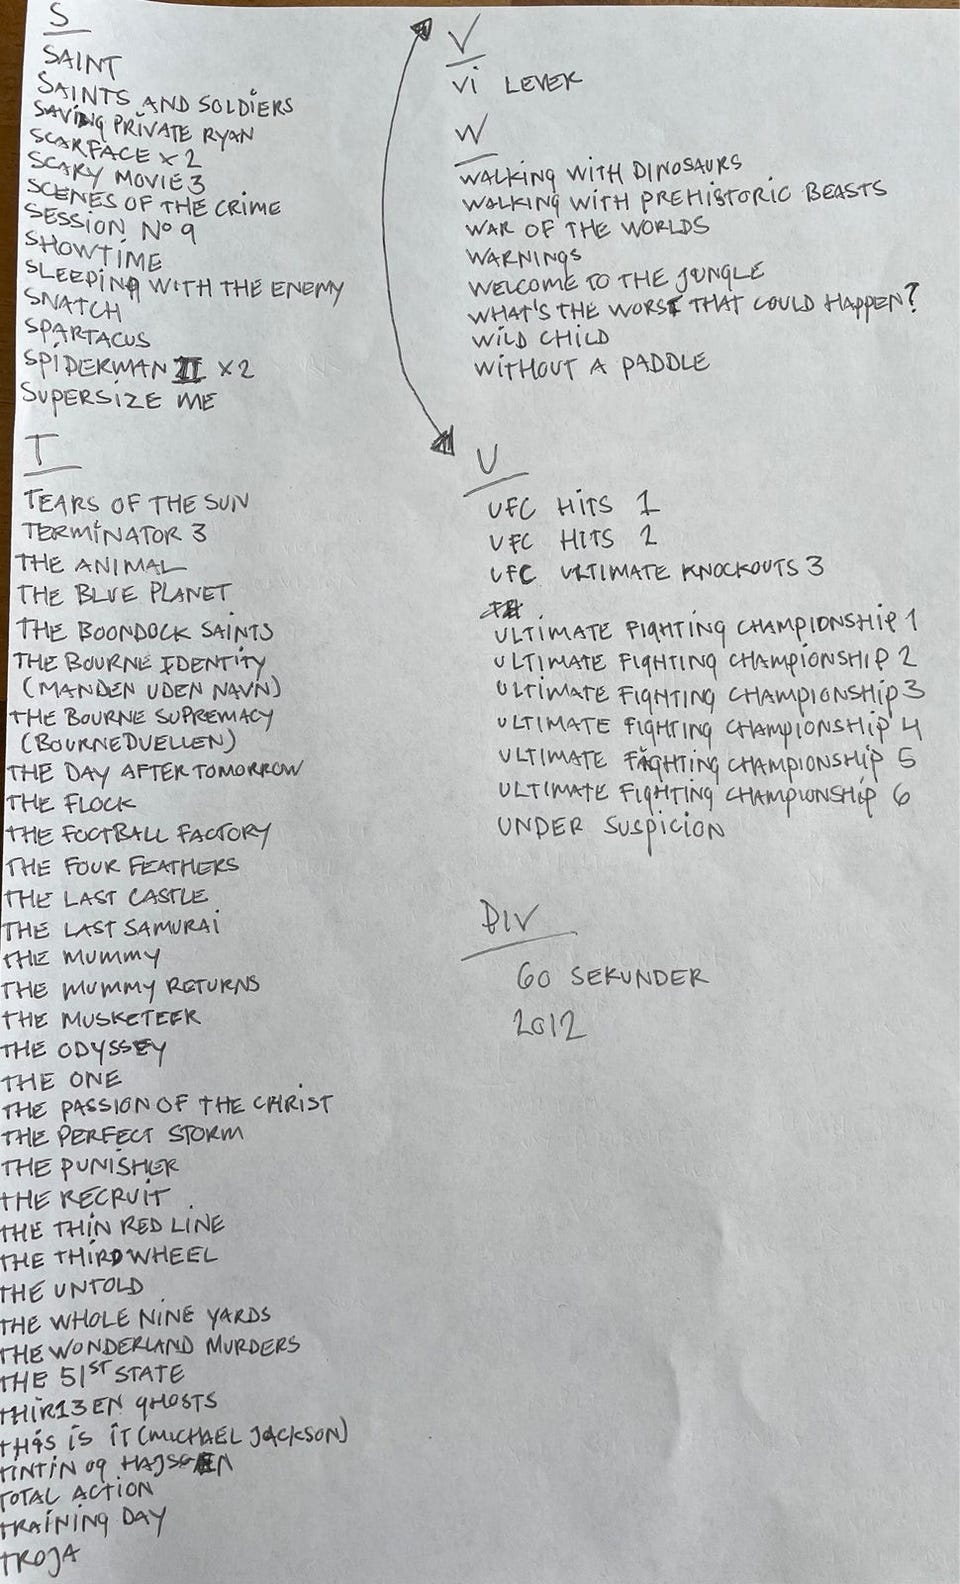 S
SAINT
SAINTS AND SOLDIERS
SAVING PRIVATE RYAN
SCARFACE x 2
SCARY MOVIE 3
SCENES OF THE CRIME
SESSION No 9
SHOWTIME
SLEEPING WITH THE ENEMY
SNATCH
SPARTACUS
SPIDERMAN II x2
SUPERSIZE ME
T
TEARS OF THE SUN
TERMINATOR 3
THE ANIMAL
THE BLUE PLANET
THE BOONDOCK SAINTS
THE BOURNE IDENTITY
(MANDEN UDEN NAVN)
THE BOURNE SUPREMACY
(BOURNE DUELLEN)
THE DAY AFTER TOMORROW
THE FLOCK
THE FOOTBALL FACTORY
THE FOUR FEATHERS
THE LAST CASTLE
THE LAST SAMURAI
THE MUMMY
THE MUMMY RETURNS
THE MUSKETEER
THE ODYSSEY
THE ONE
THE PASSION OF THE CHRIST
THE PERFECT STORM
THE PUNISHER
THE RECRUIT
THE THIN RED LINE
THE THIRD WHEEL
THE UNTOLD
THE WHOLE NINE YARDS
THE WONDERLAND MURDERS
THE 51ST STATE
THIR13EN GHOSTS
THIS IS IT (MICHAEL JACKSON)
TINTIN OG HAJSØEN
TOTAL ACTION
TRAINING DAY
TROJA
V
VI LEVER
W
WALKING WITH DINOSAURS
WALKING WITH PREHISTORIC BEASTS
WAR OF THE WORLDS
WARNINGS
WELCOME TO THE JUNGLE
WHAT'S THE WORST THAT COULD HAPPEN?
WILD CHILD
WITHOUT A PADDLE
U
UFC HITS 1
UFC HITS 2
UFC ULTIMATE KNOCKOUTS 3
ULTIMATE FIGHTING CHAMPIONSHIP 1
ULTIMATE FIGHTING CHAMPIONSHIP 2
ULTIMATE FIGHTING CHAMPIONSHIP 3
ULTIMATE FIGHTING CHAMPIONSHIP 4
ULTIMATE FIGHTING CHAMPIONSHIP 5
ULTIMATE FIGHTING CHAMPIONSHIP 6
UNDER SUSPICION
DIV
60 SEKUNDER
2012